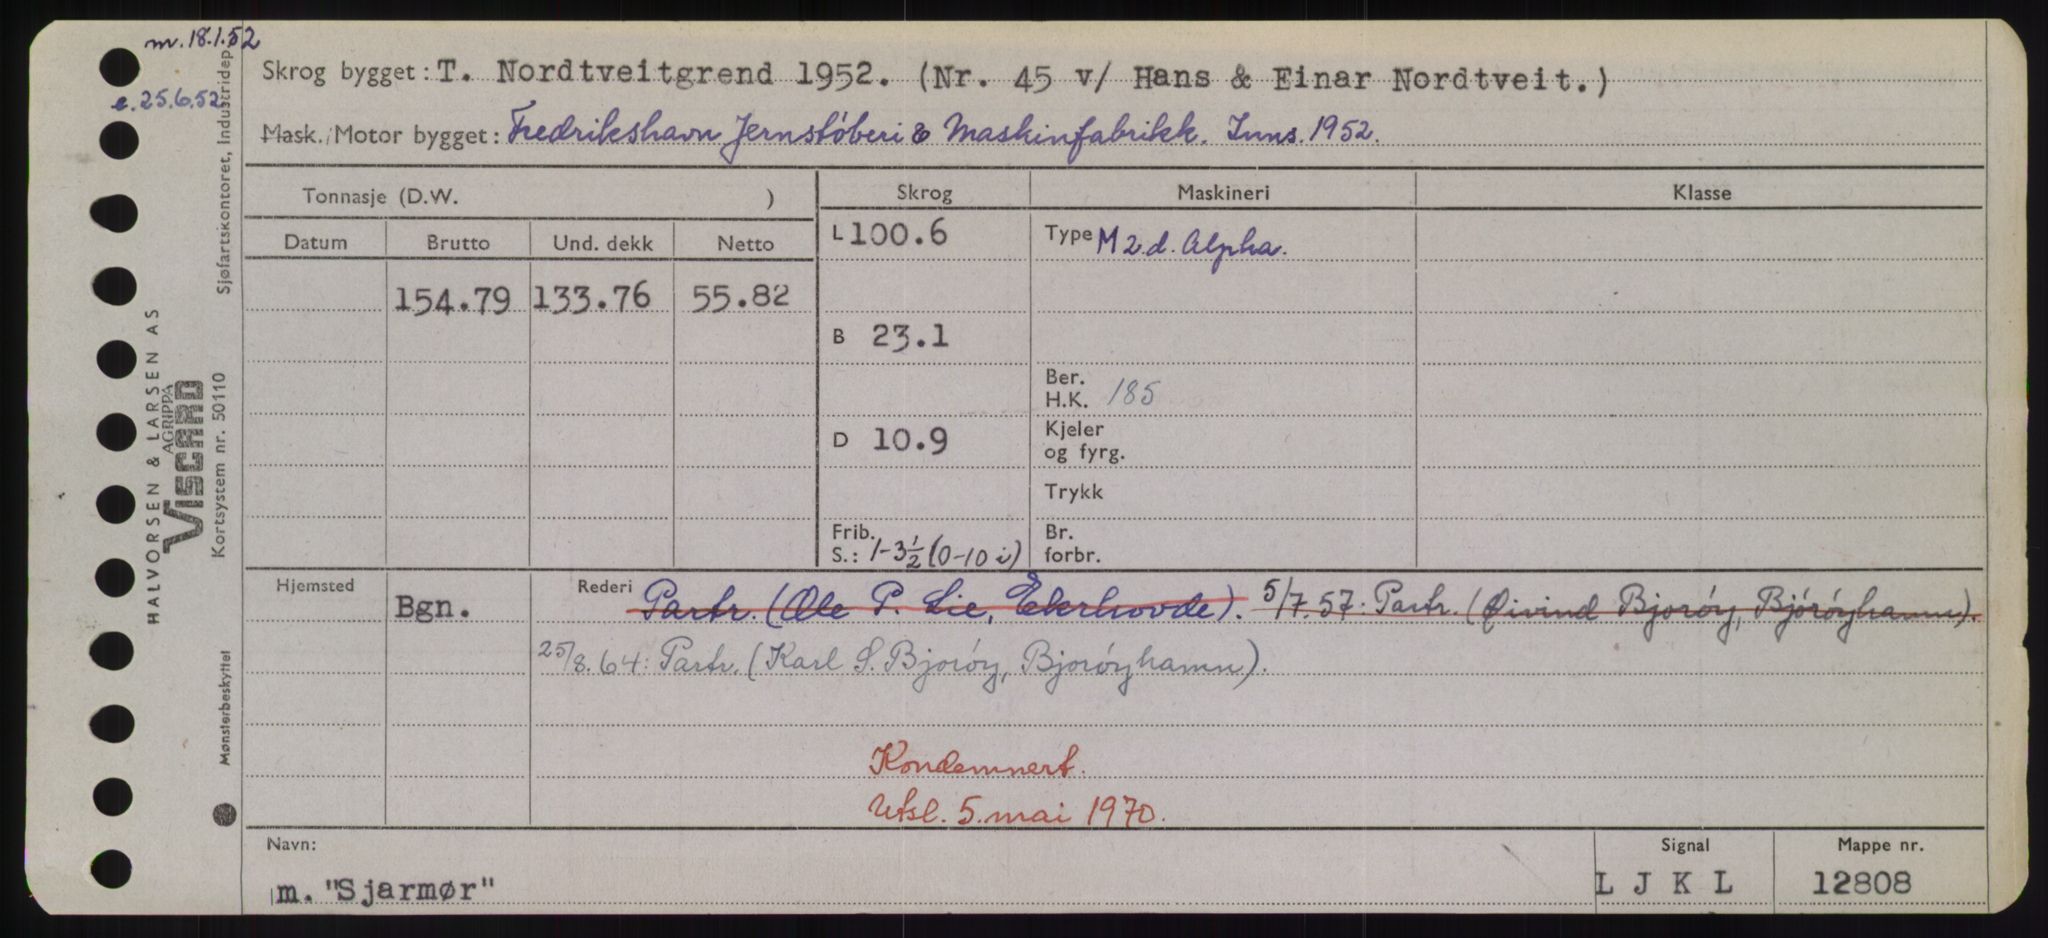 m. 18.1.52
e. 25.6.52
Skrog bygget: T. Nordtveitgrend 1952. (Nr. 45 v/ Hans & Einar Nordtveit.)
Mask./Motor bygget: Fredrikshavn Jernstøberi & Maskinfabrikk. Inns. 1952.
Tonnasje (D.W. ) Skrog Maskineri Klasse
Datum Brutto Und. dekk Netto L 100.6 Type M 2.d. Alpha.
154.79 133.76 55.82
B 23.1
Ber. H.K. 185
D 10.9 Kjeler og fyrg.
Trykk
Frib. S.: 1-3½ (0-10 i) Br. forbr.
Hjemsted Bgn. Rederi Partr. (Ole P. Lie, Ekerhovde). 5/7.57: Partr. (Øivind Bjorøy, Bjórøyhamn).
25/8.64: Partr. (Karl S. Bjorøy, Bjorøyhamn).
Kondemnert.
Utsl. 5. mai 1970.
Navn: Signal Mappe nr.
m. "Sjarmør" L J K L 12808
HALVORSEN & LARSEN AS
AGRIPPA
VISCARD
Kortsystem nr. 50110
Sjøfartskontoret, Industridep
Mønsterbeskyttet